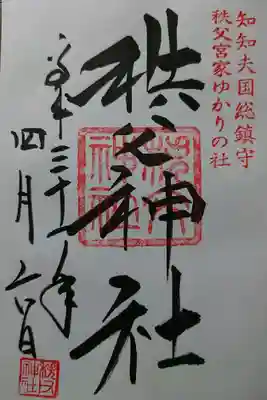 知知夫国総鎮守
秩父宮家ゆかりの社
秩父神社
平成三十年
四月六日
秩父神社